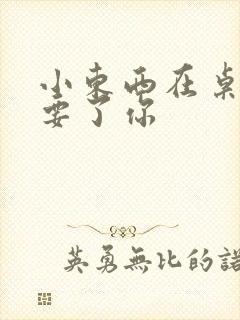 小东西在桌
要了你
英勇無比的諾